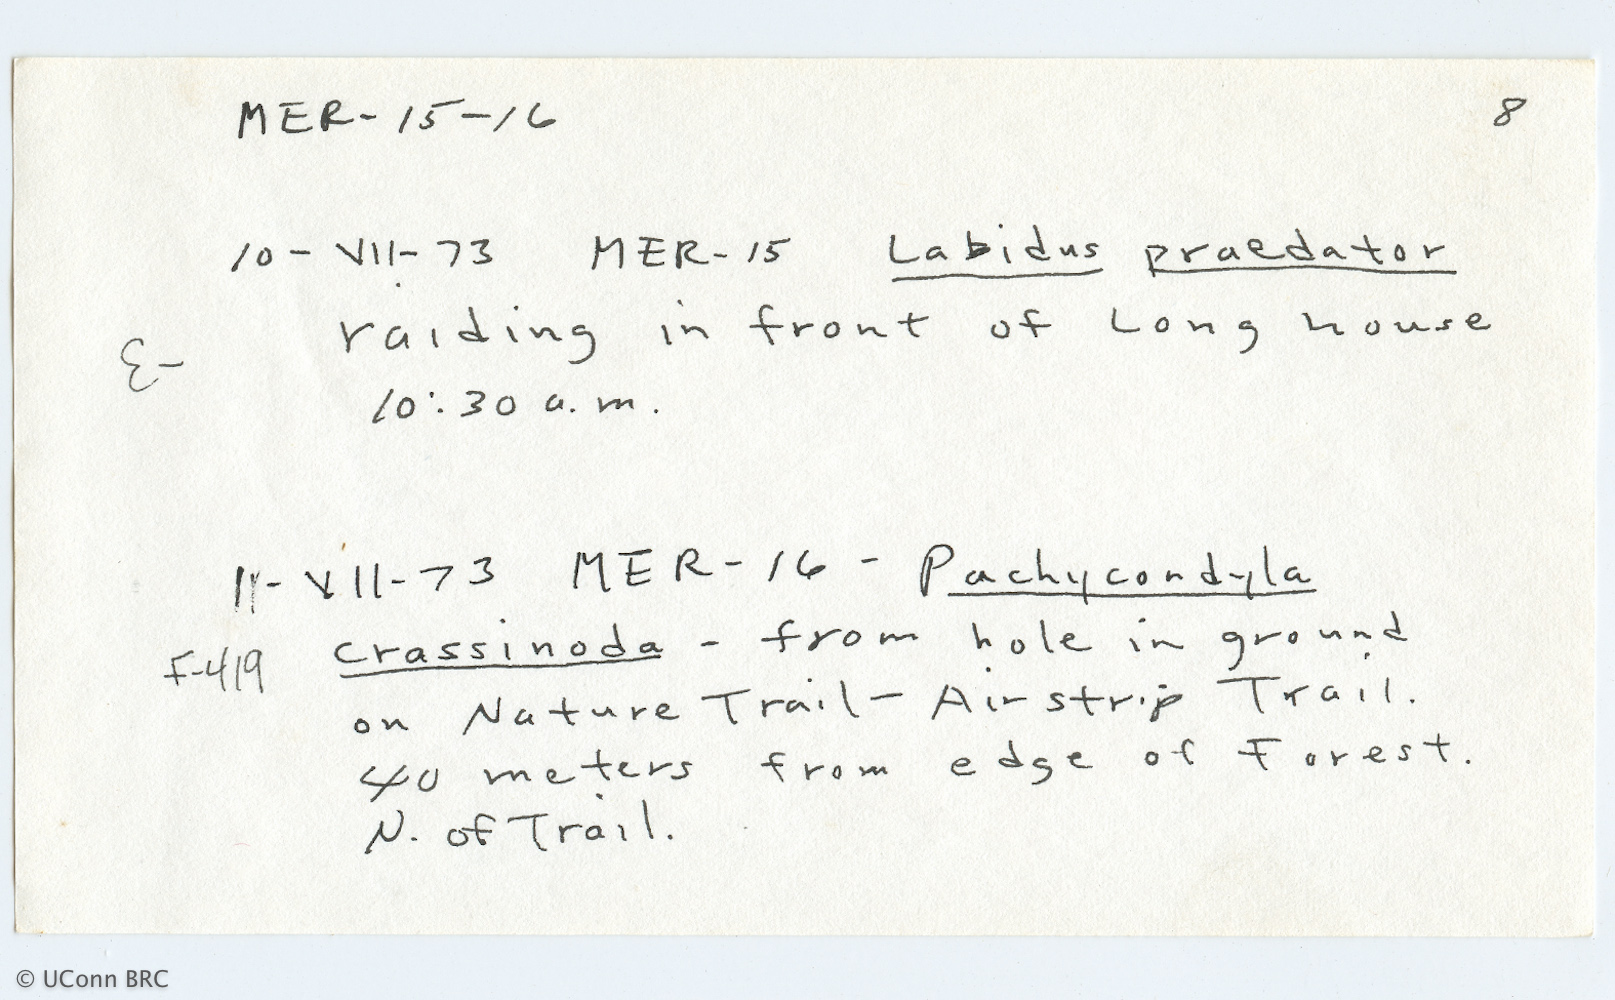 MER-15-16 8
10-VII-73 MER-15 Labidus praedator
raiding in front of Long house
E-
10:30 a.m.
11-VII-73 MER-16 - Pachycondyla
F-419 crassinoda - from hole in ground
on Nature Trail - Airstrip Trail.
40 meters from edge of Forest.
N. of Trail.
© UConn BRC